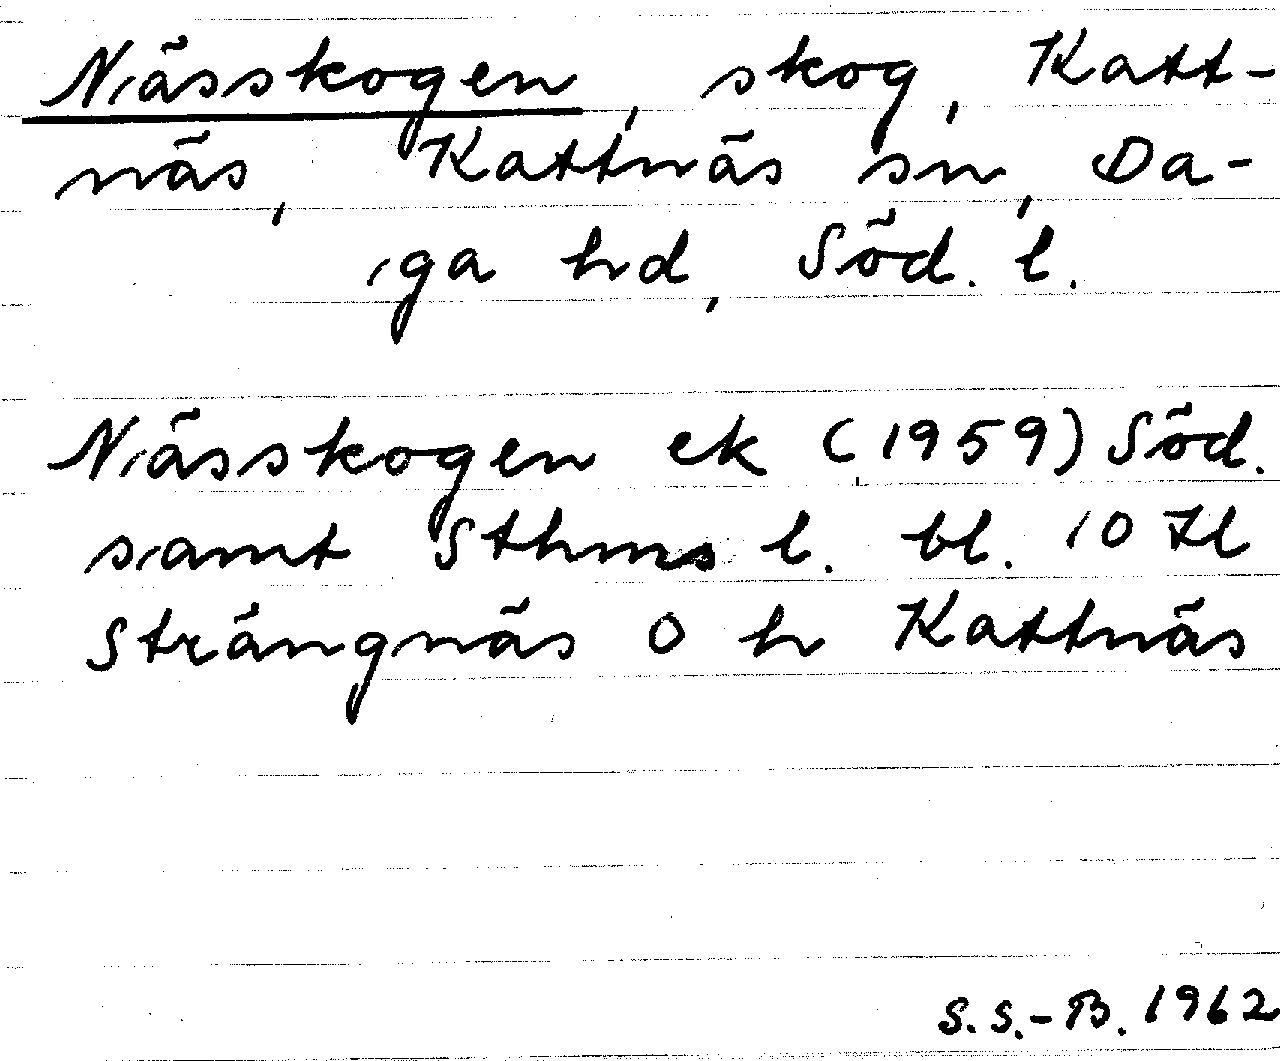 Nässkogen, skog, Katt-
näs, Kattnäs sn, Da-
ga hd, Söd. l.
Nässkogen ek (1959) Söd.
samt Sthms l. bl. 10 Il
Strängnäs O h Kattnäs
S.S.-B. 1962